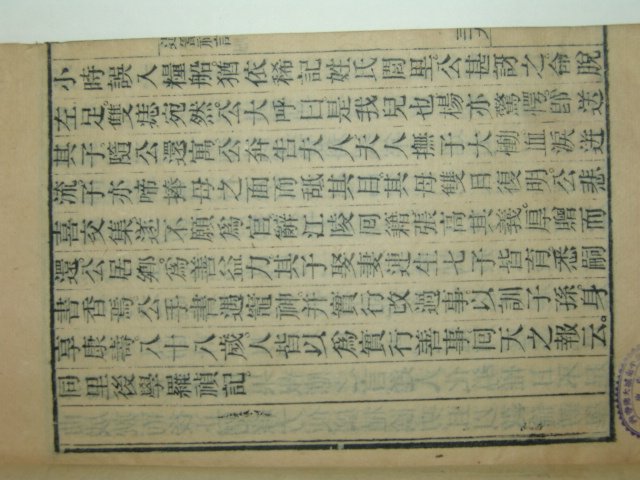 小時誤入糧船。猶依稀記姓氏閭里。公甚訝之。命脫
左足。雙痣宛然。公大呼曰是我兒也。楊亦驚愕。卽送
其子隨公還寓。公拜告夫人。夫人撫子大慟。血淚迸
流。子亦啼。捧母之面而舐其目。其母雙目復明。公悲
喜交集。遂不願爲官。辭江陵回籍。張高其義。厚贈而
還。公居鄉。爲善益力。其子娶妻。連生七子。皆育。悉嗣
書香焉。公手書遇竈神并實行改過事。以訓子孫。身
享康壽八十八歲。人皆以爲實行善事回天之報云。
同里後學羅禎記。